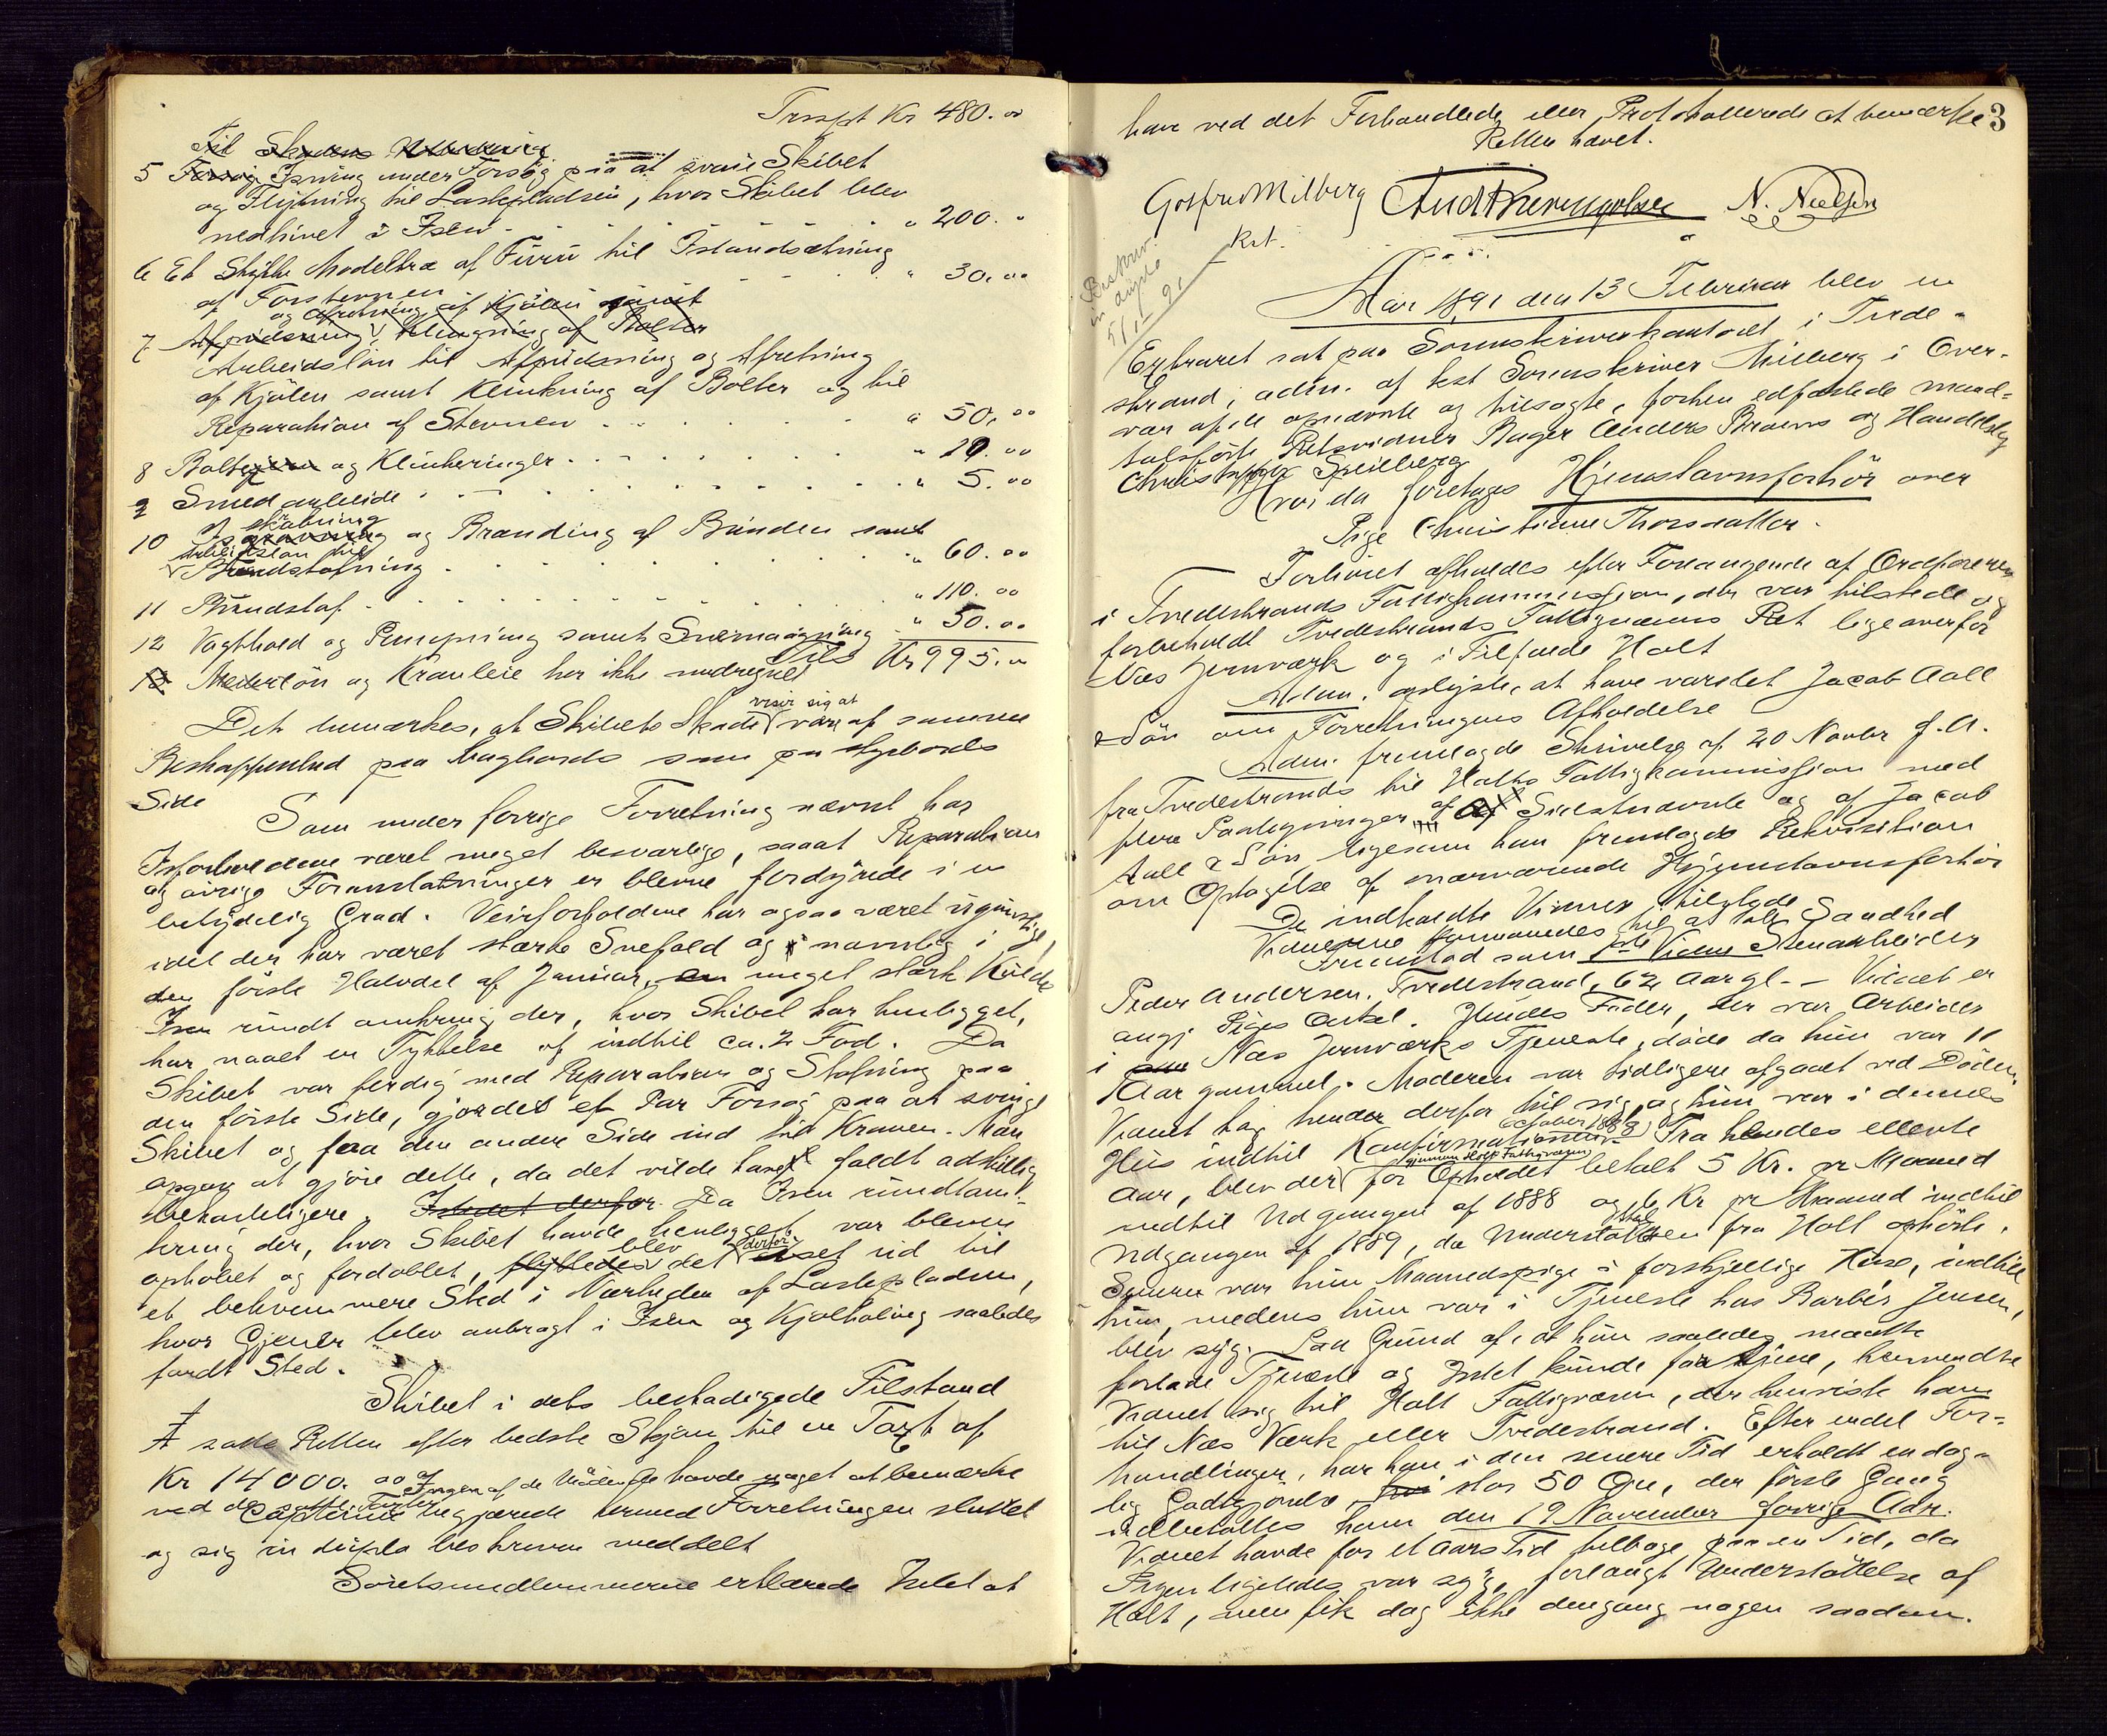 Trsspt Kr 480.00
Til Skadens Udbedring
5 Forsøg Isning under Forsög paa at svaie Skibet
og Flytning til Lastepladsen, hvor Skibet blev
nedhivet i Isen - " 200. "
6 Et Stykke Modeltræ af Furu til Istandsætning
af Forstevnen " 30.00
og Afretning af Kjölen samt
7 Afpudsning, Klingning af Bolter
Arbeidslön til Afpudsning og Afretning
af Kjölen samt Klinkning af Bolter og til
Reparation af Stevnen " 50.00
8 Boltejern og Klinkeringer " 10.00
9 Smedarbeide " 5.00
skrabning
10 og Branding af Bunden samt
Arbeidslön til
Brædstofning " 60.00
11 Brædstof " 110.00
12 Vagthold og Pumpning samt Snemaagning " 50.00
Tils Kr 995.00
13 Mesterlön og Kranleie her ikke medregnet
viser sig at
Det bemærkes, at Skibets Skade være af samme
Beskaffenhed paa Bagbords som paa Styrbords
Side
Som under forrige Forretning nævnt har
Isforholdene været meget besværlige, saaat Reparationen
og övrige Foranstaltninger er blevne fordyrede i en
betydelig Grad. Veirforholdene har ogsaa været ugunstige,
idet der har været stærke Snefald og navnlig i
den förste Halvdel af Januar, en meget stærk Kulde
Isen rundt omkring der, hvor Skibet har henligget,
har naaet en Tykkelse af indtil ca. 2 Fod. Da
Skibet var ferdig med Reparation og Stofning paa
den förste Side, gjordes et Par Forsög paa at svinge
Skibet og faa den anden Side ind til Kranen. Man
opgav at gjöre dette, da det vilde have faldt adskillig
bekosteligere. Istedet derfor Da Isen rundtom-
kring der, hvor Skibet havde henligget var bleven
blev derfor
ophobet og fordoblet, flyttedes det iset ud til
et bekvemmere Sted i Nærheden af Lastepladsen,
hvor Gjener blev anbragt i Isen og Kjølhaling saaledes
fandt Sted.
Skibet i dets beskadigede Tilstand
satte Retten efter bedste Skjøn til en Taxt af
Kr 14000.00
Ingen af de Mödende havde noget at bemærke
ved de satte Taxter
Capteine begjærede hermed Forretningen sluttet
og sig in duplo beskreven meddelt
Søretsmedlemmerne erklærede Intet at
3
have ved det Forhandlede eller Protokollerede at bemærke
Retten hævet.
Gotfred Milberg And Thevengolsen N. Nielsen
Rkt.
Beskrev.
in duplo
5/11 - 91
Aar 1891 den 13 Februar blev en
Extraret sat paa Sorenskriverkontoret i Tvede-
strand, adm. af kst Sorenskriver Milberg i Over-
vær af de opnævnte og tilsagte, forhen edfæstede mand-
talsförte Retsvidner Bager Anders Bruuns og Handelsbg
Christopher Speilberg
Hvorda foretoges Hjemstavnsforhör over
Pige Christiane Thorsdatter.
Forhöret afholdes efter Forlangende af Ordföreren
i Tvedestrands Fattigkommission, der var tilstede og
forbeholdt Tvedestrands Fattigvæsens Ret ligeoverfor
Næs Jernværk og i Tilfælde Holt
Adm. oplyste, at have varslet Jacob Aall
& Sön om Forretningens Afholdelse
Adm. fremlagde Skrivelse af 20 Novbr f. A.
fra Tvedestrands til Holts Fattigkommission med
flere Paategninger af Sidstnævnte og af Jacob
Aall & Sön, ligesom han fremlagde Rekvisition
om Optagelse af nærværende Hjemstavnsforhör
De indkaldte Vidner tilstede
Vidnerne formanedes til at tale Sandhed
Fremstod som 1ste Vidne Stenarbeider
Peder Andersen. Tvedestrand, 62 Aar gl. - Vidnet er
angj Piges Onkel. Hendes Fader, der var Arbeider
i paa Næs Jernværks Tjeneste, döde da hun var 11
Aar gammel. Moderen var tidligere afgaaet ved Döden.
Vidnet tog hende derfor til sig, og hun var i dennes
October 1888
Hus indtil Konfirmationen. Fra hendes ellevte
gjennem Holts Fattigvæsen
Aar, blev der for Opholdet betalt 5 Kr. pr Maaned
indtil Udgangen af 1888 og 6 Kr pr Maaned indtil
Udgangen af 1889, da Understöttelsen fra Holt ophörte.
Senere var hun Maanedspige i forskjellige Huse, indtil
hun, medens hun var i Tjeneste hos Barbér Jensen,
blev syg. Paa Grund af, at hun saaledes maatte
forlade Tjeneste og Intet kunde fortjene, henvendte
Vidnet sig til Holt Fattigvæsen, der henviste ham
til Næs Værk eller Tvedestrand. Efter endel For-
handlinger, har han i den senere Tid erholdt en dag-
lig Godtgjörelse, stor 50 Öre, der förste Gang
udbetaltes ham den 19 November forrige Aar.
Vidnet havde for et Aars Tid tilbage paa en Tid, da
Pigen ligeledes var syg, forlangt Understöttelse af
Holt, men fik dog ikke dengang nogen saadan.